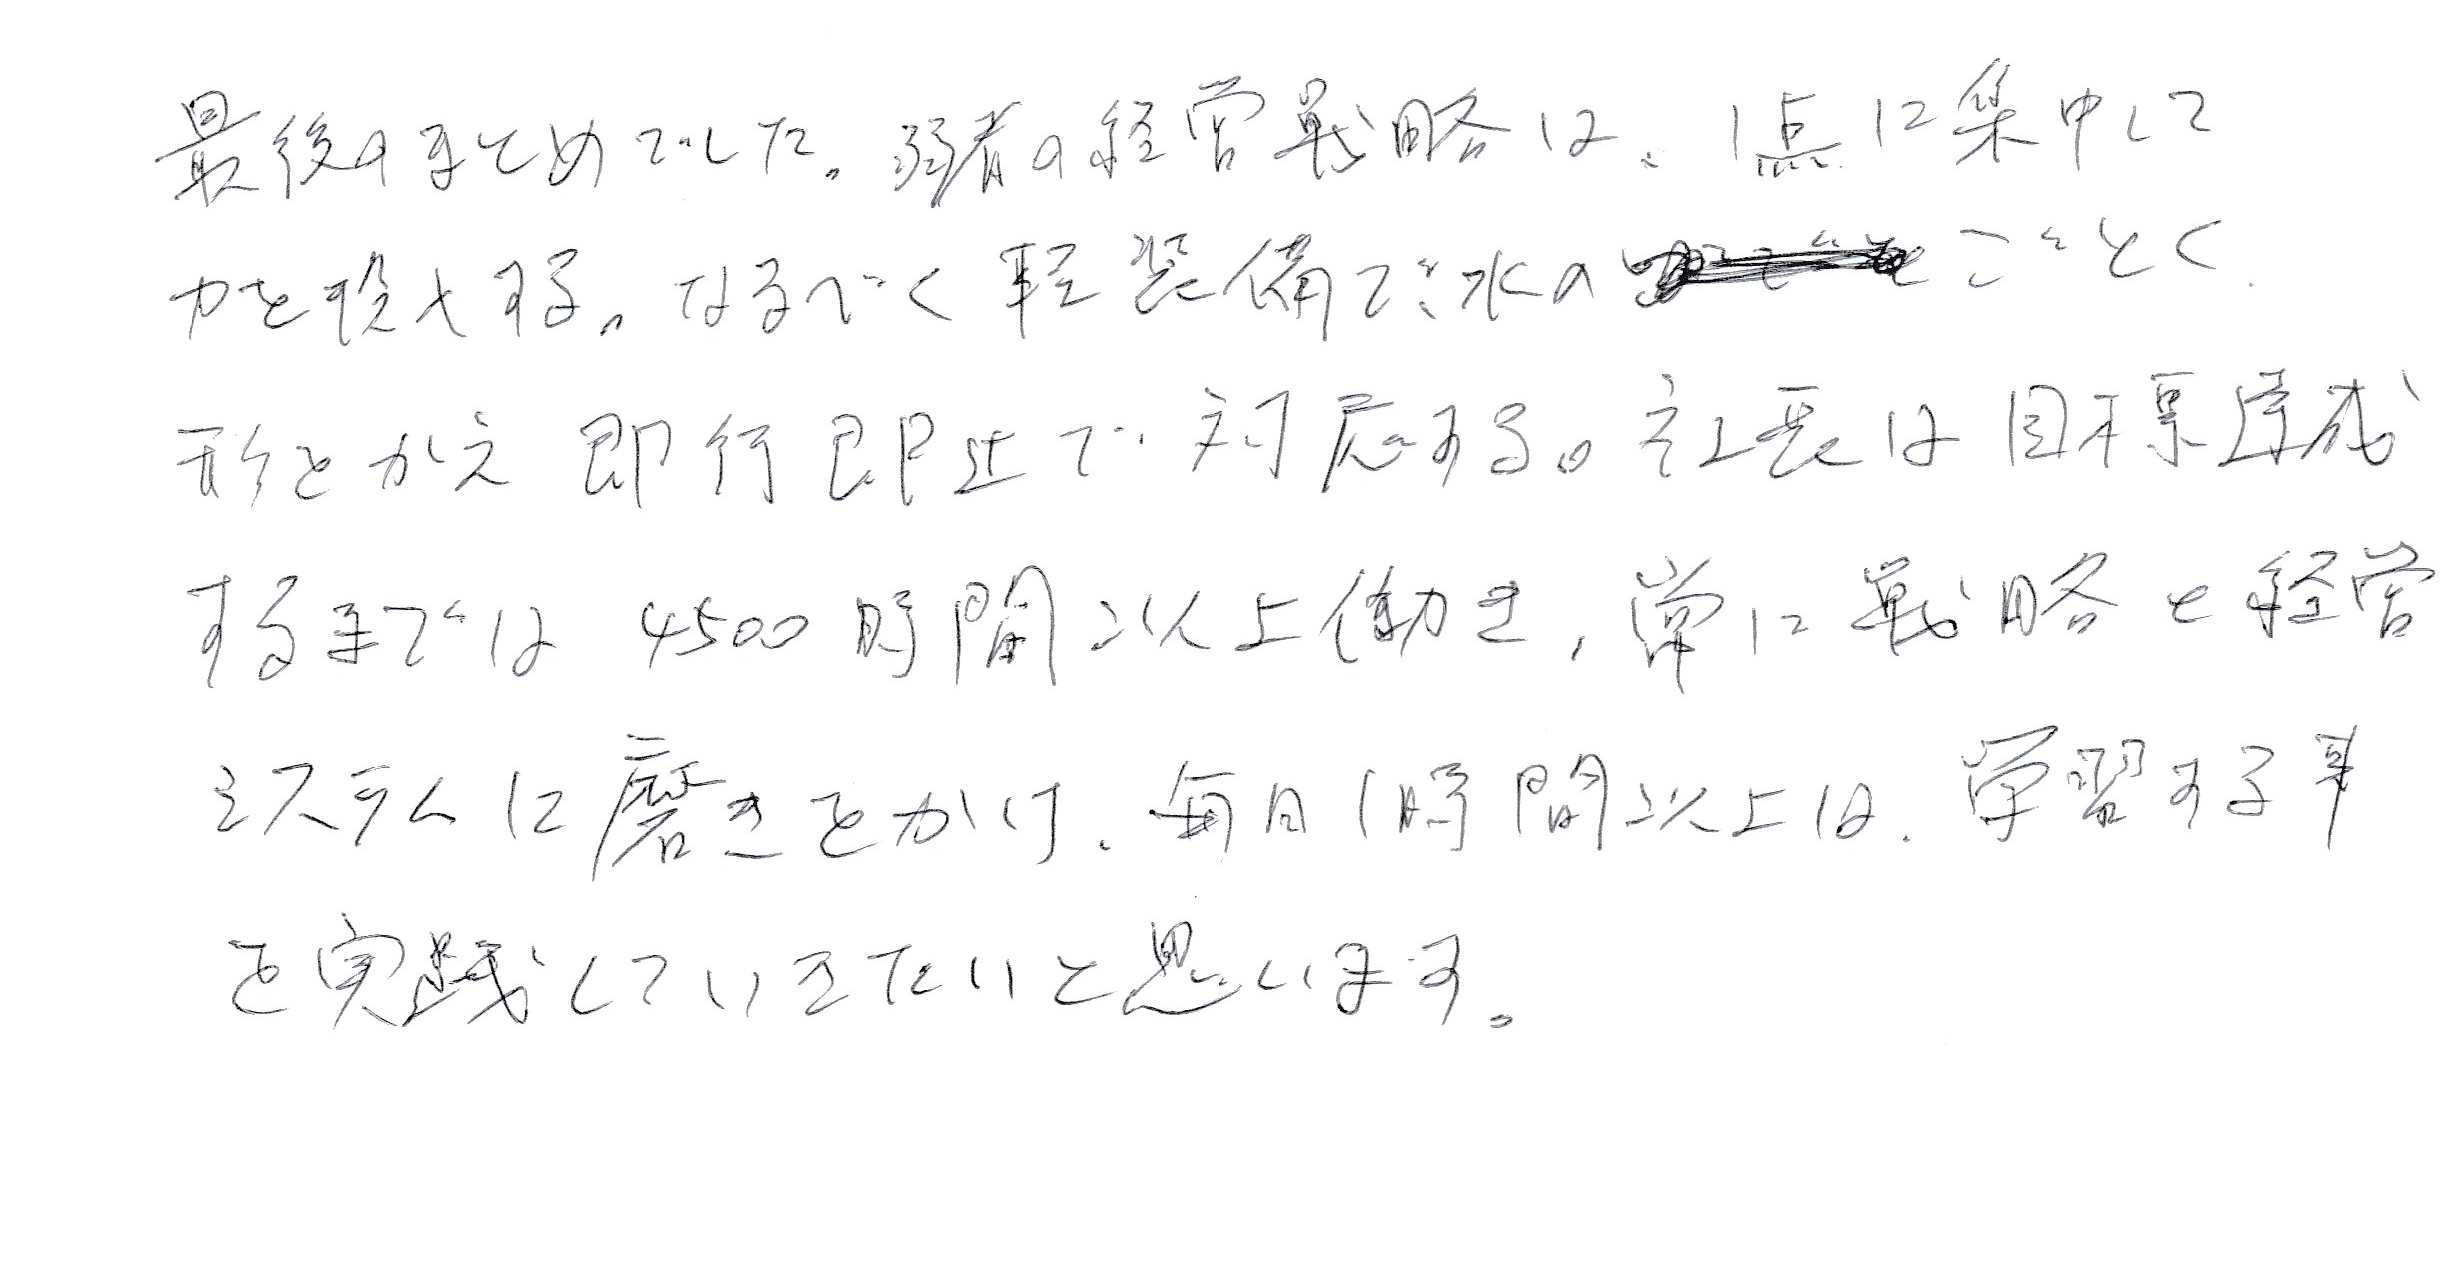 最後のまとめでした。弱者の経営戦略は、1点に集中して
力を投入する。なるべく軽装備で水のごとく
形をかえ即行即止で対応する。社長は目標達成
するまでは4500時間以上働き、常に戦略と経営
システムに磨きをかけ、毎日1時間以上は、学習する事
を実践していきたいと思います。